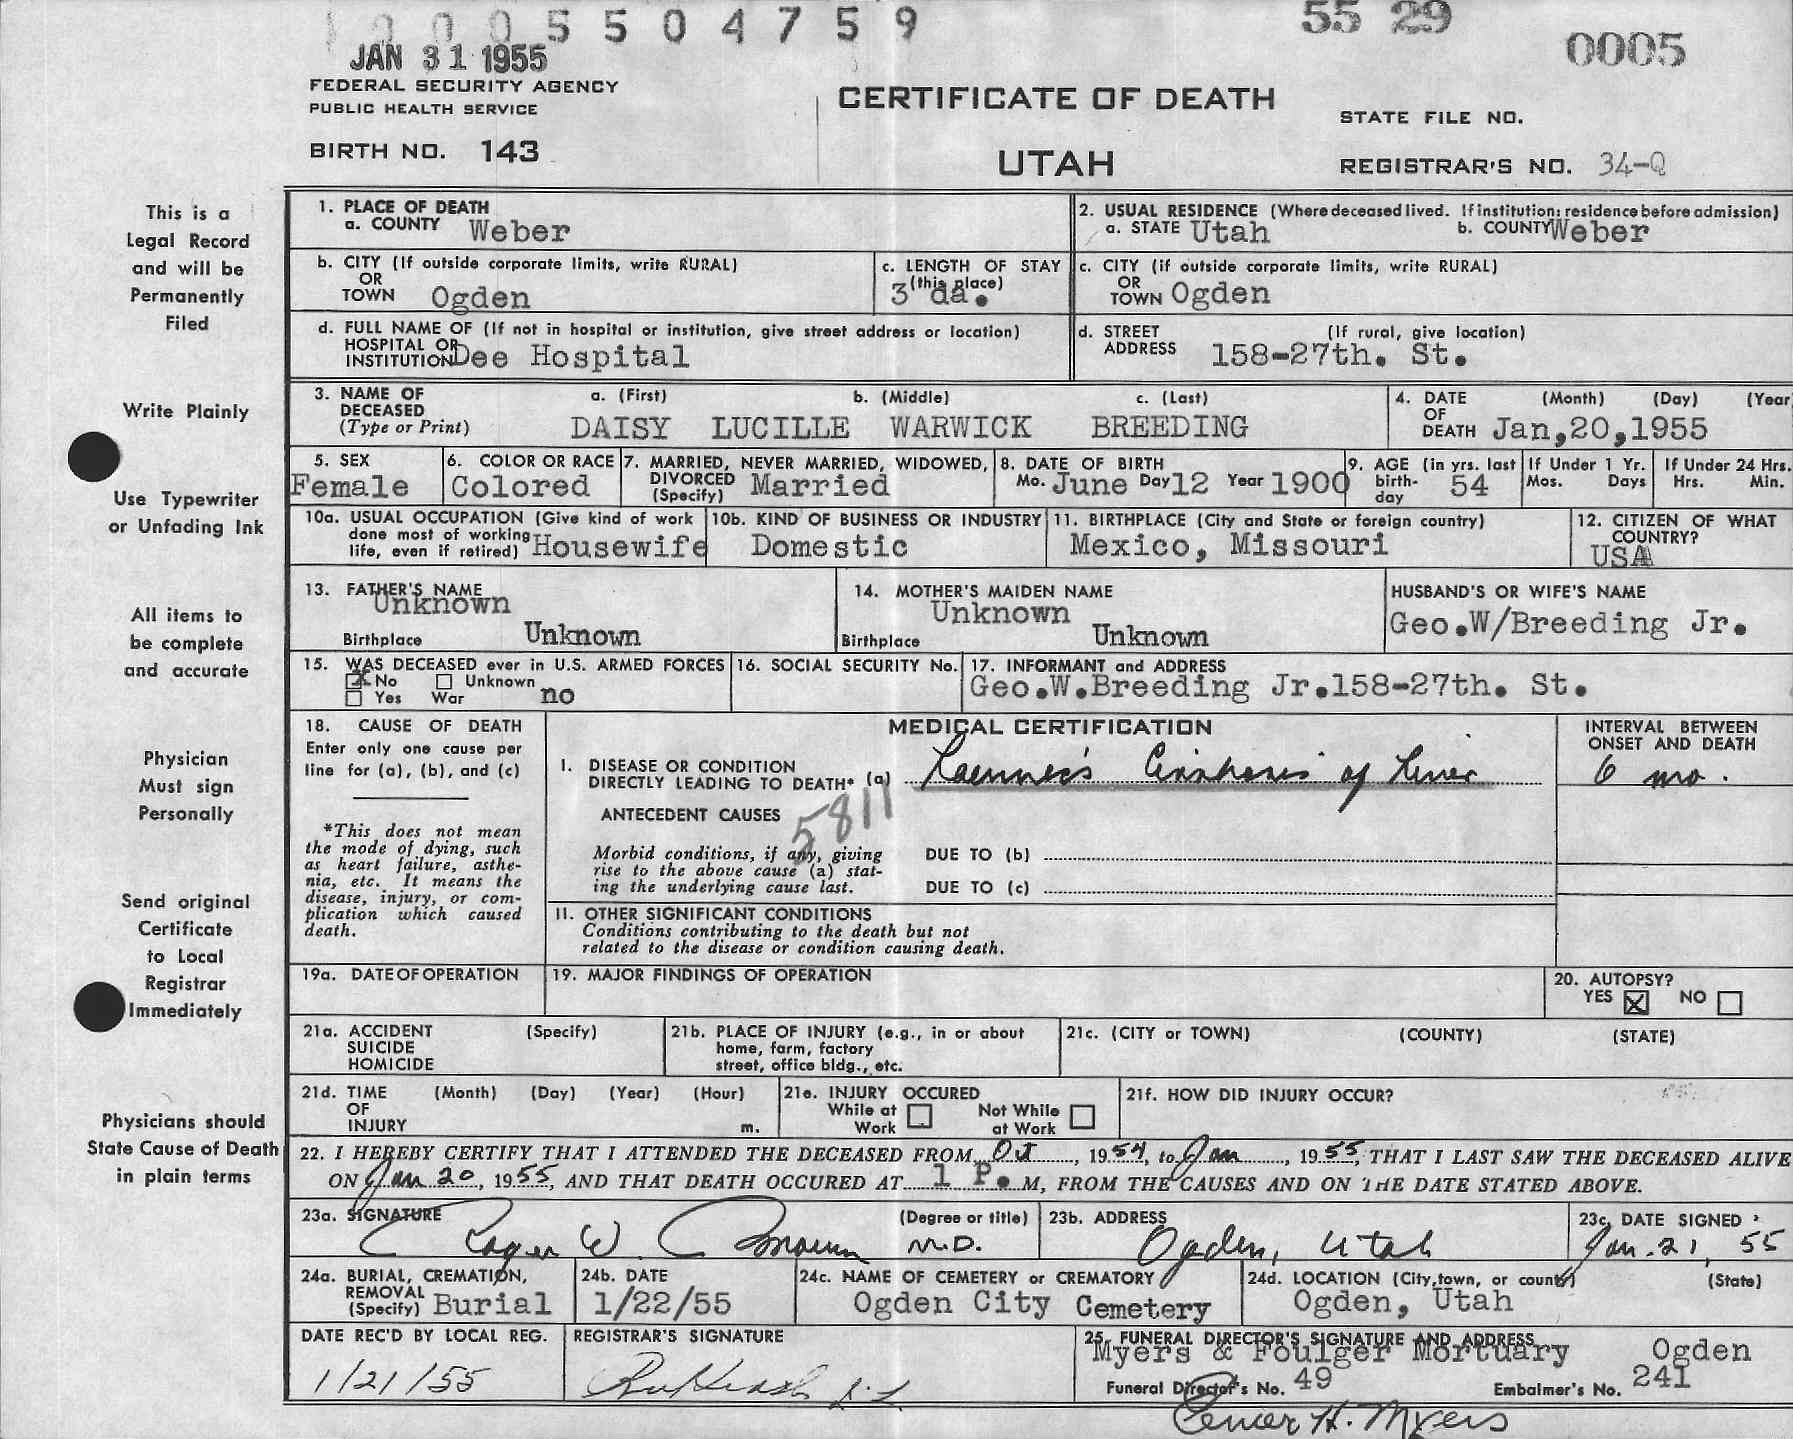 5 5 0 4 7 5 9
55 29
0005
JAN 31 1955
FEDERAL SECURITY AGENCY
PUBLIC HEALTH SERVICE
CERTIFICATE OF DEATH
STATE FILE NO.
BIRTH NO. 143
UTAH
REGISTRAR'S NO. 34-Q
This is a
Legal Record
and will be
Permanently
Filed
Write Plainly
Use Typewriter
or Unfading Ink
All items to
be complete
and accurate
Physician
Must sign
Personally
Send original
Certificate
to Local
Registrar
Immediately
Physicians should
State Cause of Death
in plain terms
1. PLACE OF DEATH
a. COUNTY Weber
2. USUAL RESIDENCE (Where deceased lived. If institution: residence before admission)
a. STATE Utah b. COUNTY Weber
b. CITY (If outside corporate limits, write RURAL)
OR
TOWN Ogden
c. LENGTH OF STAY
(this place)
3 da.
c. CITY (if outside corporate limits, write RURAL)
OR
TOWN Ogden
d. FULL NAME OF (If not in hospital or institution, give street address or location)
HOSPITAL OR
INSTITUTION Dee Hospital
d. STREET (If rural, give location)
ADDRESS 158-27th. St.
3. NAME OF a. (First) b. (Middle) c. (Last)
DECEASED
(Type or Print) DAISY LUCILLE WARWICK BREEDING
4. DATE (Month) (Day) (Year
OF
DEATH Jan,20,1955
5. SEX
Female
6. COLOR OR RACE
Colored
7. MARRIED, NEVER MARRIED, WIDOWED,
DIVORCED
(Specify) Married
8. DATE OF BIRTH
Mo. June Day 12 Year 1900
9. AGE (in yrs. last
birth-
day 54
If Under 1 Yr.
Mos. Days
If Under 24 Hrs.
Hrs. Min.
10a. USUAL OCCUPATION (Give kind of work
done most of working
life, even if retired) Housewife
10b. KIND OF BUSINESS OR INDUSTRY
Domestic
11. BIRTHPLACE (City and State or foreign country)
Mexico, Missouri
12. CITIZEN OF WHAT
COUNTRY?
USA
13. FATHER'S NAME
Unknown
Birthplace Unknown
14. MOTHER'S MAIDEN NAME
Unknown
Birthplace Unknown
HUSBAND'S OR WIFE'S NAME
Geo.W/Breeding Jr.
15. WAS DECEASED ever in U.S. ARMED FORCES
X No Unknown
Yes War no
16. SOCIAL SECURITY No.
17. INFORMANT and ADDRESS
Geo.W.Breeding Jr.158-27th. St.
18. CAUSE OF DEATH
Enter only one cause per
line for (a), (b), and (c)
*This does not mean
the mode of dying, such
as heart failure, asthe-
nia, etc. It means the
disease, injury, or com-
plication which caused
death.
MEDICAL CERTIFICATION
INTERVAL BETWEEN
ONSET AND DEATH
I. DISEASE OR CONDITION
DIRECTLY LEADING TO DEATH* (a) Laennec's Cirrhosis of Liver
6 mo.
ANTECEDENT CAUSES
5811
Morbid conditions, if any, giving
rise to the above cause (a) stat-
ing the underlying cause last.
DUE TO (b)
DUE TO (c)
II. OTHER SIGNIFICANT CONDITIONS
Conditions contributing to the death but not
related to the disease or condition causing death.
19a. DATE OF OPERATION
19. MAJOR FINDINGS OF OPERATION
20. AUTOPSY?
YES X NO
21a. ACCIDENT (Specify)
SUICIDE
HOMICIDE
21b. PLACE OF INJURY (e.g., in or about
home, farm, factory
street, office bldg., etc.
21c. (CITY or TOWN) (COUNTY) (STATE)
21d. TIME (Month) (Day) (Year) (Hour)
OF
INJURY m.
21e. INJURY OCCURED
While at Work
Not While at Work
21f. HOW DID INJURY OCCUR?
22. I HEREBY CERTIFY THAT I ATTENDED THE DECEASED FROM Oct, 1954, to Jan, 1955, THAT I LAST SAW THE DECEASED ALIVE
ON Jan 20, 1955, AND THAT DEATH OCCURED AT 1 P.M, FROM THE CAUSES AND ON THE DATE STATED ABOVE.
23a. SIGNATURE (Degree or title)
M.D.
23b. ADDRESS
Ogden, Utah
23c. DATE SIGNED
Jan. 21, 55
24a. BURIAL, CREMATION,
REMOVAL
(Specify) Burial
24b. DATE
1/22/55
24c. NAME OF CEMETERY or CREMATORY
Ogden City Cemetery
24d. LOCATION (City, town, or county) (State)
Ogden, Utah
DATE REC'D BY LOCAL REG.
1/21/55
REGISTRAR'S SIGNATURE
25. FUNERAL DIRECTOR'S SIGNATURE AND ADDRESS
Myers & Foulger Mortuary Ogden
Funeral Director's No. 49 Embalmer's No. 241
H. Myers